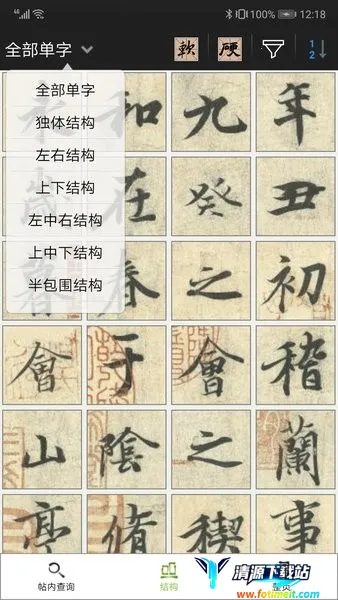 4G 100% 12:18
全部单字 軟 硬 1 2
全部单字
独体结构
左右结构
上下结构
左中右结构
上中下结构
半包围结构
永 和 九 年
歲 在 癸 丑
暮 春 之 初
會 于 會 稽
山 陰 之 蘭
亭 脩 禊 事
帖内查询 结构 整页
清源下载站
www.fotimeit.com